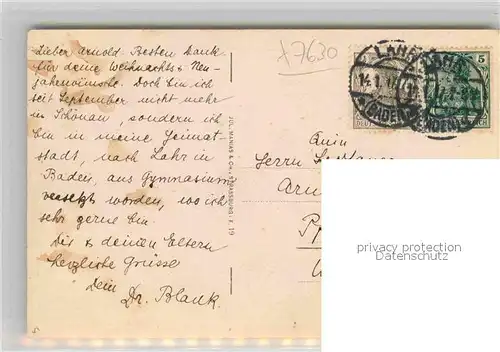 Lieber Arnold. Besten Dank
für deine Weihnachts & Neu-
jahrswünsche. Doch bin ich
seit September nicht mehr
in Schönau, sondern ich
bin in meine Heimat-
stadt, nach Lahr in
Baden, aus Gymnasium
versetzt worden, wo ich
sehr gerne bin.
Dir & deinen Eltern
herzliche Grüsse
Dein
Dr. Blank.
JUL. MANIAS & Cie., STRASSBURG i. E. 19
x7630
LAHR
(BADEN)
5
Herrn
privacy protection
Datenschutz